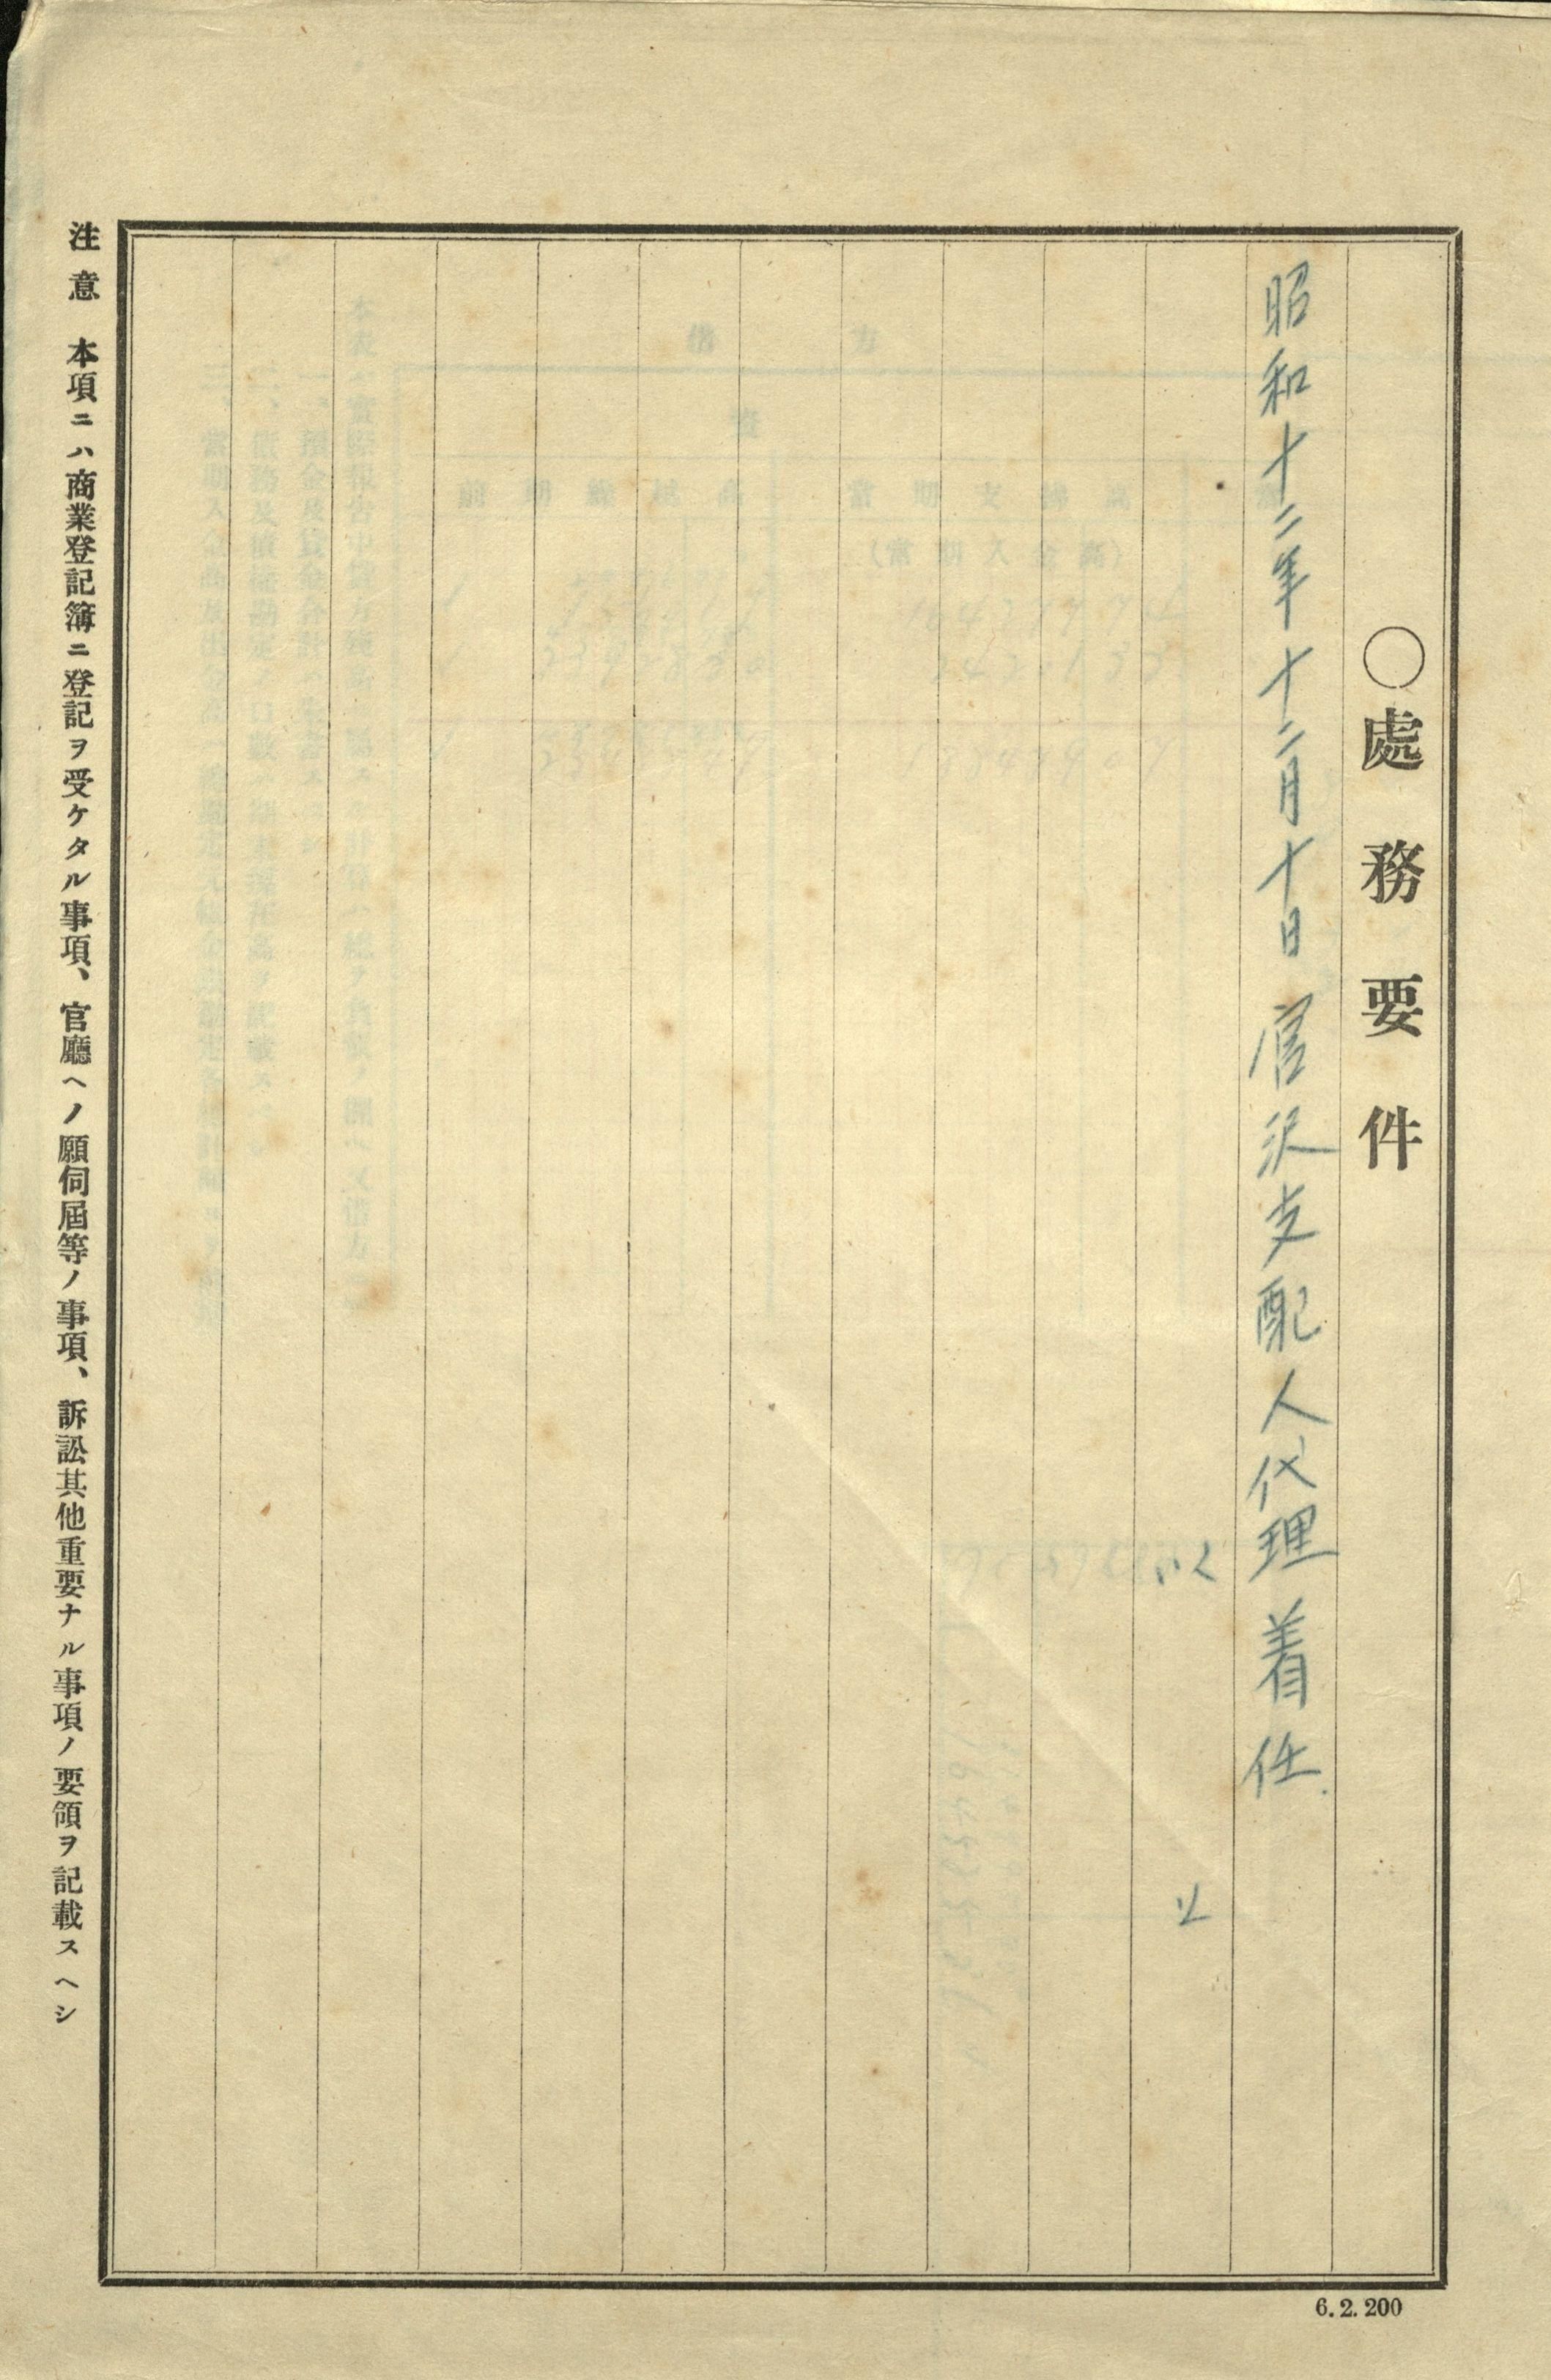 〇處務要件
昭和十二年十二月十日 宮沢支配人代理着任.
以上
注意 本項ニハ商業登記簿ニ登記ヲ受ケタル事項、官廳ヘノ願伺屆等ノ事項、訴訟其他重要ナル事項ノ要領ヲ記載スヘシ
6.2.200